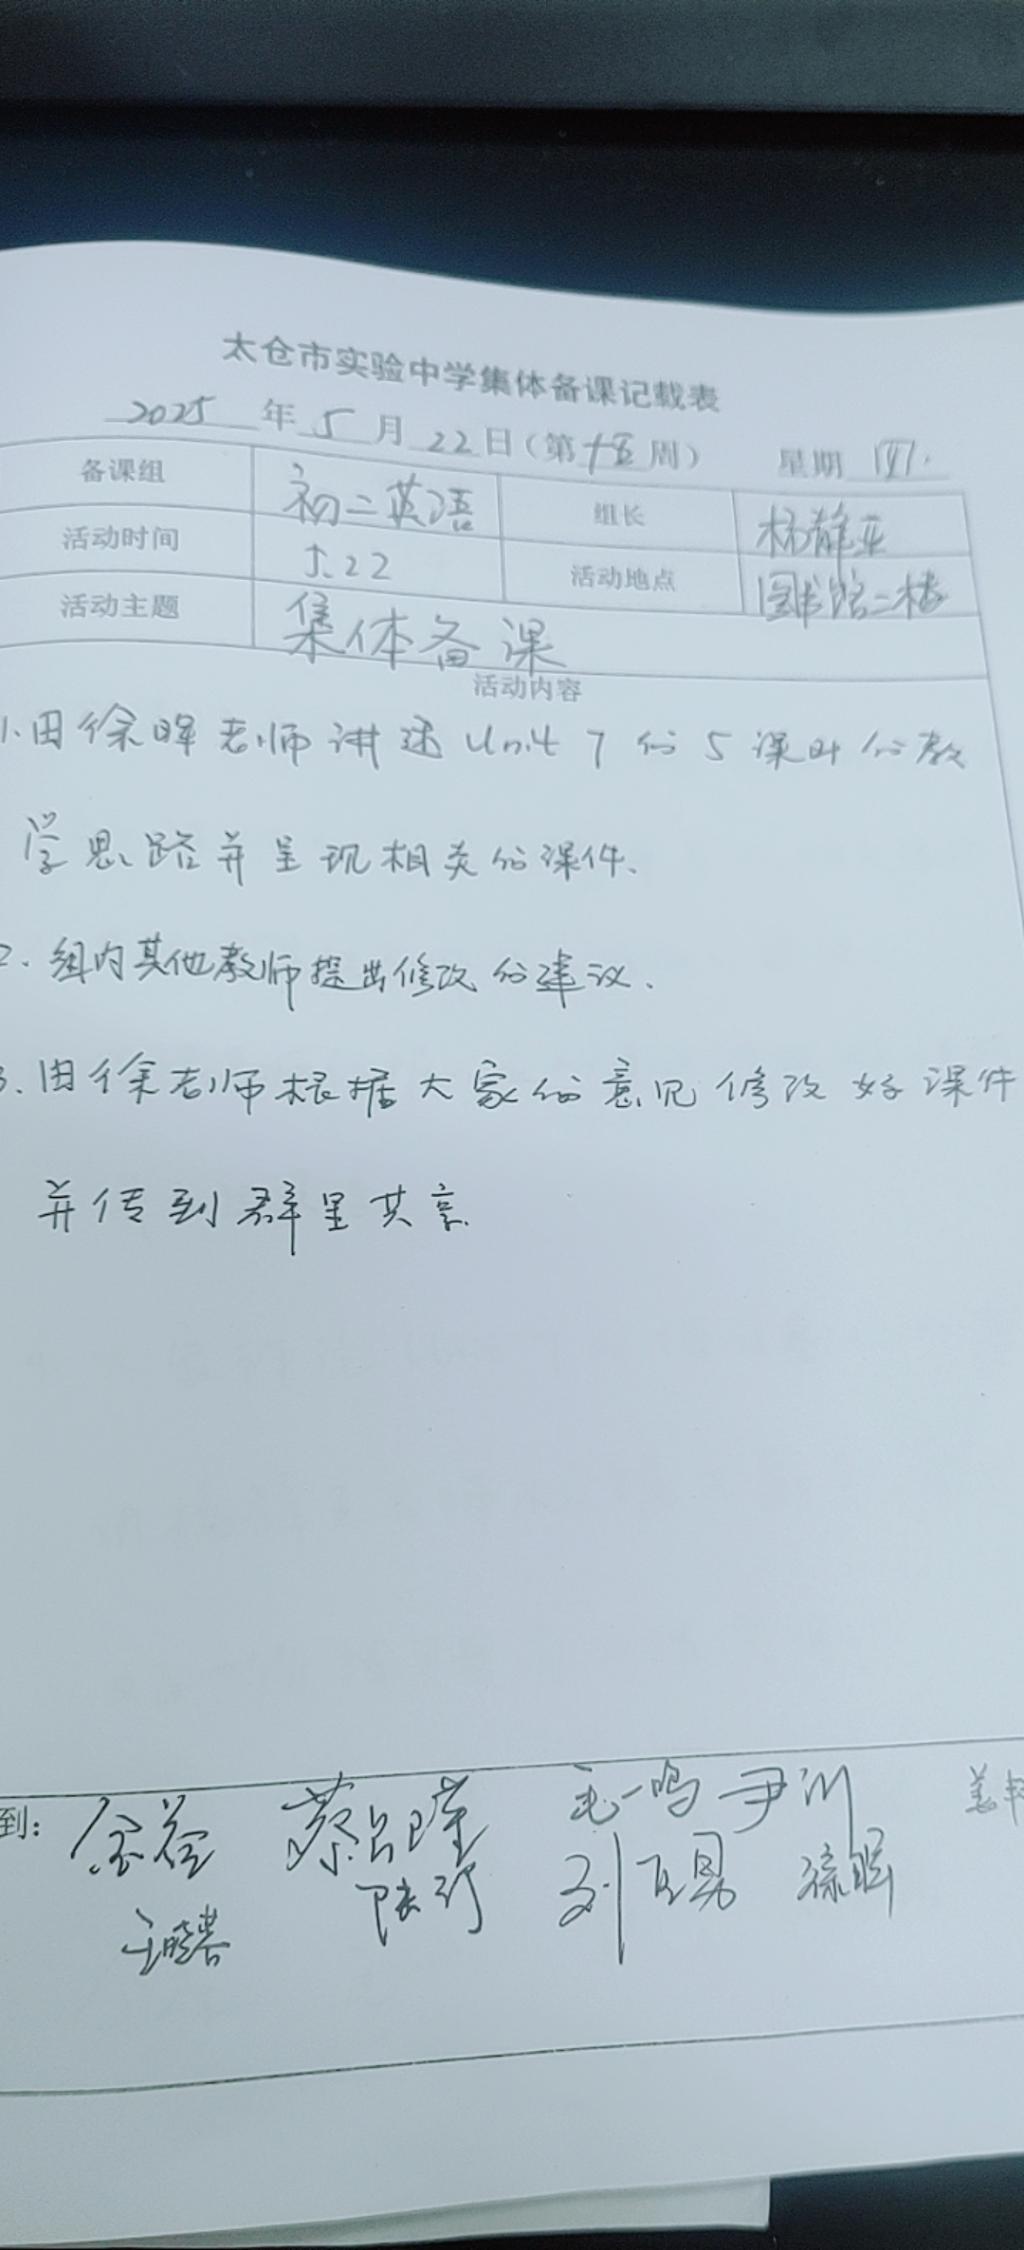 太仓市实验中学集体备课记载表
2025 年 5 月 22 日（第 十五 周） 星期 四.
备课组 初二英语 组长 杨静亚
活动时间 5.22 活动地点 图书馆二楼
活动主题 集体备课
活动内容
1.由徐晖老师讲述 Unit 7 的 5 课时的教
学思路并呈现相关的课件.
2. 组内其他教师提出修改的建议.
3.由徐老师根据大家的意见修改好课件
并传到群里共享.
到: 毛一鸣 尹川 姜
徐晖